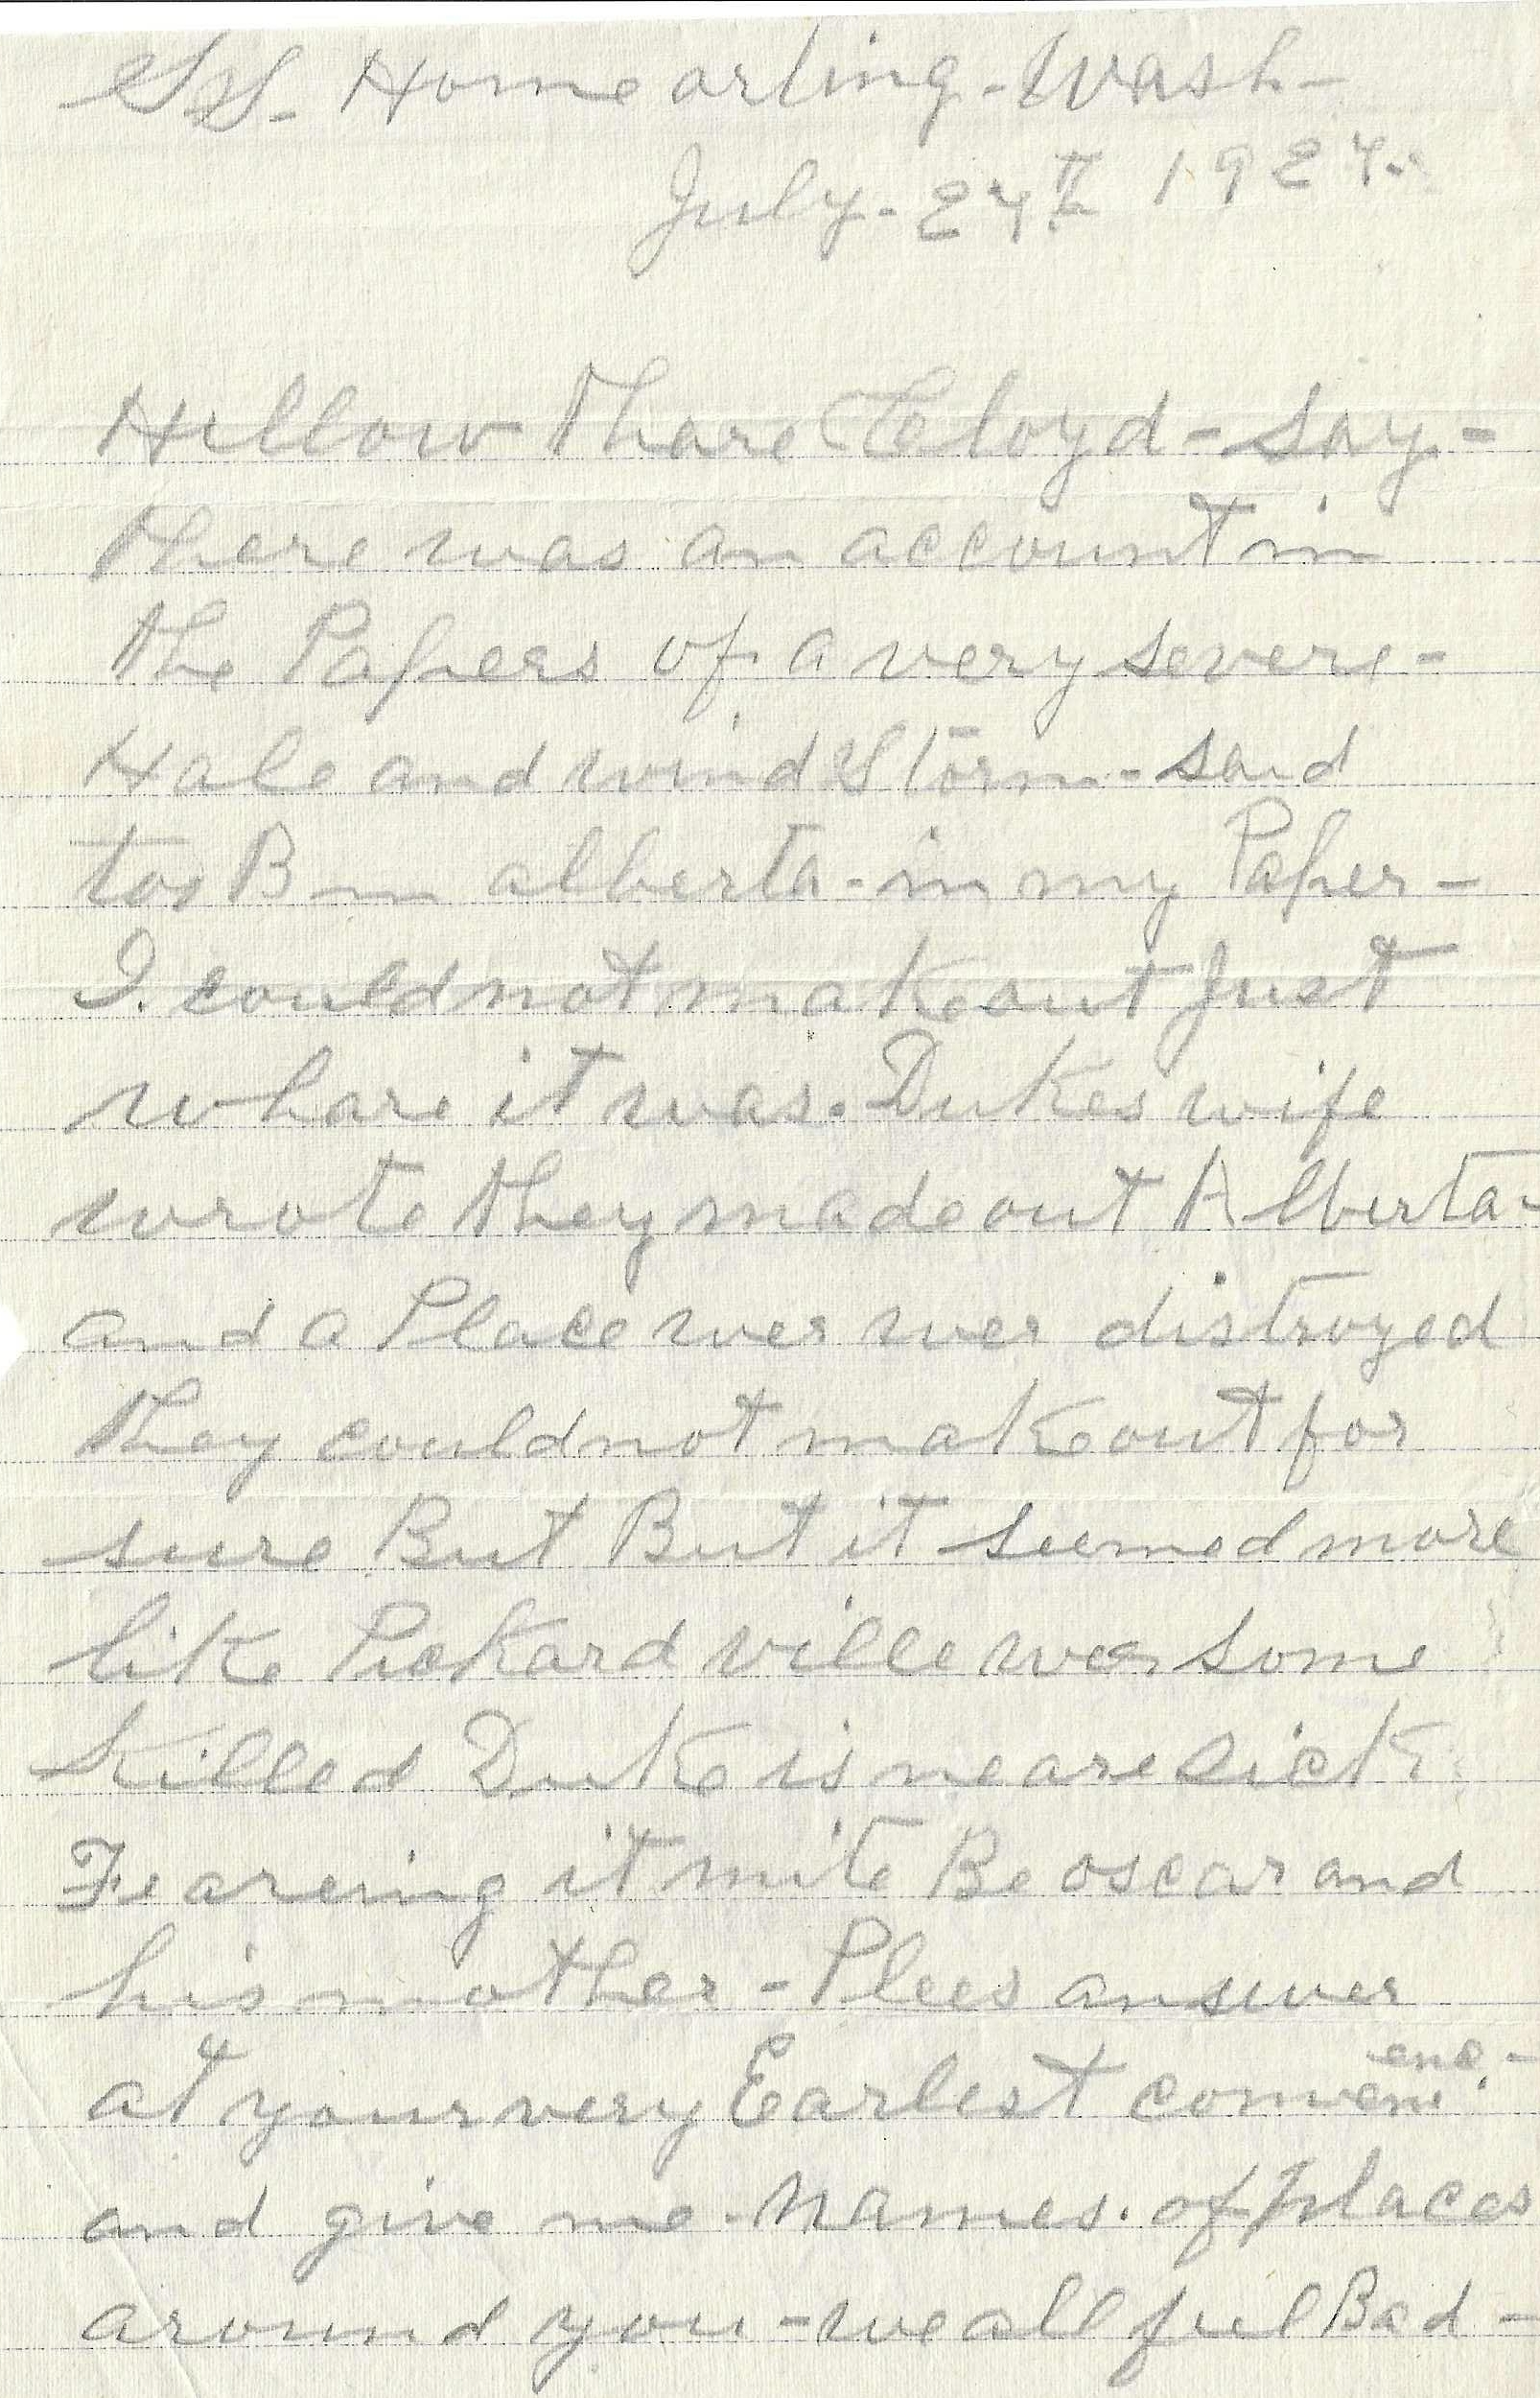 S.S. Home orting - Wash -
July - 24th 1924.
Hellow Thare Cloyd - say -
there was an account in
the Papers of a very severe -
Hale and wind Storm - said
too B in alberta - in my Paper -
I. could not make out Just
whare it was. Dukes wife
wrote they made out Alberta -
and a Place wer wer distroyed
they could not make out for
sure But But it seemed more
like Pickard ville wer some
killed Duke is neare sick
Feareing it mite Be oscar and
his mother - Plees answer
at your very Earlest convenienc. -
and give me. Names. of places
around you - we all feel Bad -